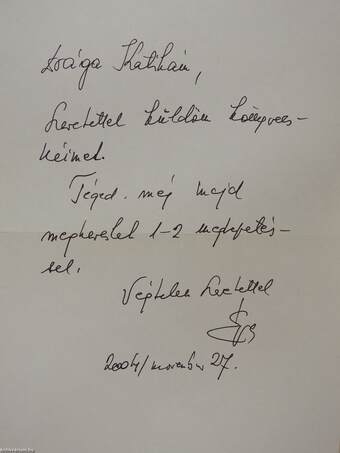 Drága Katikám,
Szeretettel küldöm könyvecs-
kéimet.
Téged még majd
megkereslek 1-2 meglepetés-
sel.
Végtelen szeretettel
2004/november 27.